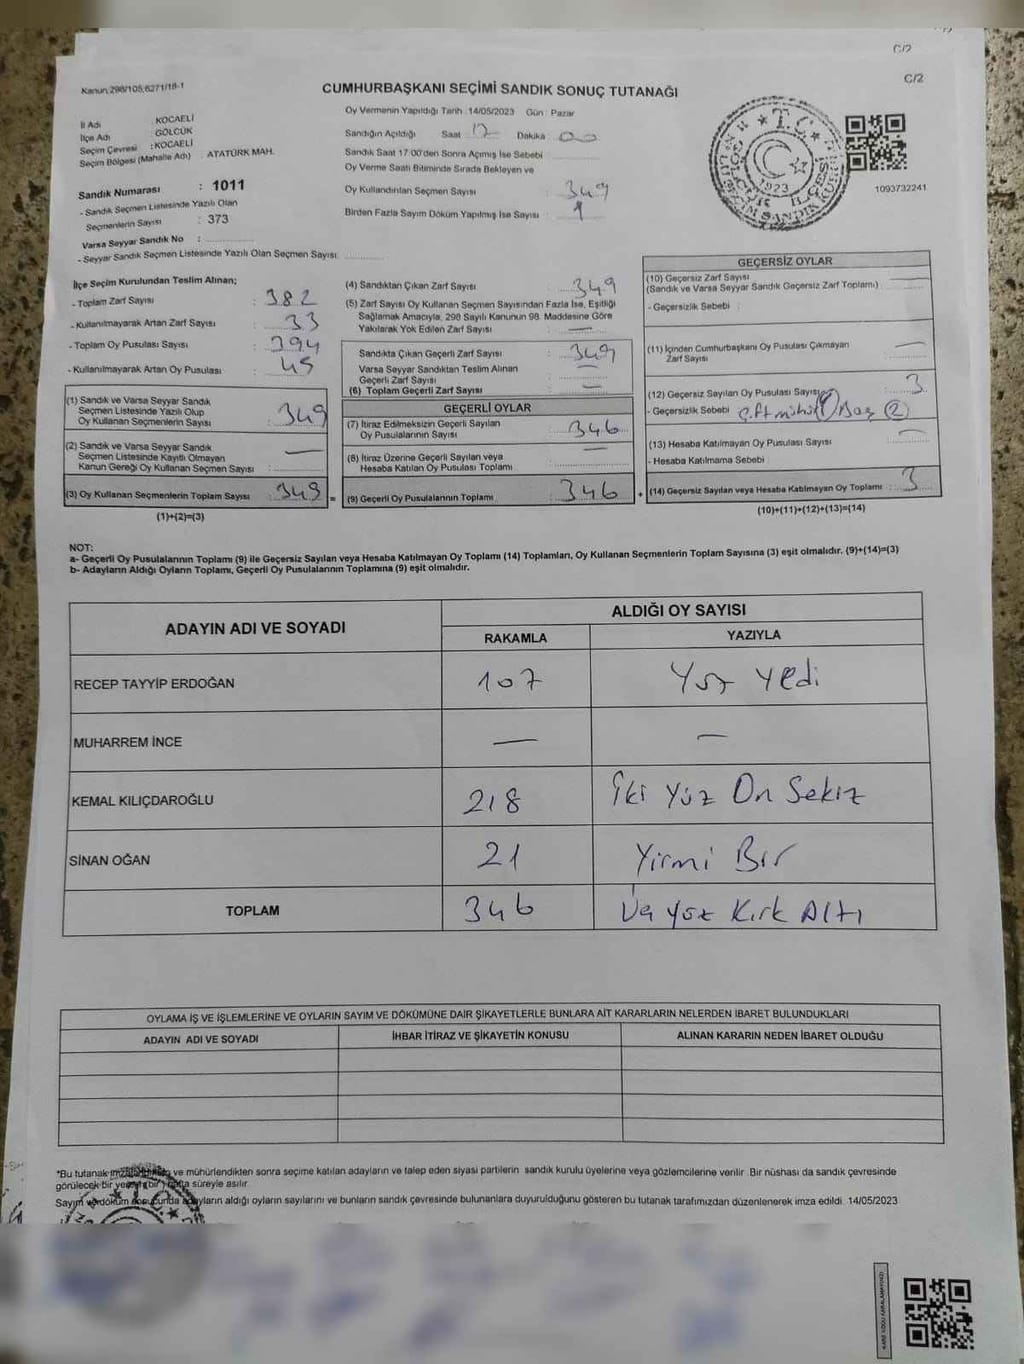 C/2
Kanun 298/105,6271/18-1
C/2
CUMHURBAŞKANI SEÇİMİ SANDIK SONUÇ TUTANAĞI
İl Adı KOCAELİ
İlçe Adı GÖLCÜK
Seçim Çevresi : KOCAELİ
Seçim Bölgesi (Mahalle Adı) : ATATÜRK MAH.
Sandık Numarası : 1011
- Sandık Seçmen Listesinde Yazılı Olan
Seçmenlerin Sayısı : 373
Varsa Seyyar Sandık No :
- Seyyar Sandık Seçmen Listesinde Yazılı Olan Seçmen Sayısı:
Oy Vermenin Yapıldığı Tarih :14/05/2023 Gün : Pazar
Sandığın Açıldığı Saat 17 Dakika 00
Sandık Saat 17:00'den Sonra Açmış İse Sebebi
Oy Verme Saati Bitiminde Sırada Bekleyen ve
Oy Kullandırılan Seçmen Sayısı : 349
Birden Fazla Sayım Döküm Yapılmış İse Sayısı : 1
T.C.
1923
1093732241
İlçe Seçim Kurulundan Teslim Alınan;
- Toplam Zarf Sayısı : 382
- Kullanılmayarak Artan Zarf Sayısı : 33
- Toplam Oy Pusulası Sayısı : 394
- Kullanılmayarak Artan Oy Pusulası : 45
(1) Sandık ve Varsa Seyyar Sandık
Seçmen Listesinde Yazılı Olup
Oy Kullanan Seçmenlerin Sayısı : 349
(2) Sandık ve Varsa Seyyar Sandık
Seçmen Listesinde Kayıtlı Olmayan
Kanun Gereği Oy Kullanan Seçmen Sayısı : —
(3) Oy Kullanan Seçmenlerin Toplam Sayısı : 349 =
(1)+(2)=(3)
(4) Sandıktan Çıkan Zarf Sayısı : 349
(5) Zarf Sayısı Oy Kullanan Seçmen Sayısından Fazla İse, Eşitliği
Sağlamak Amacıyla, 298 Sayılı Kanunun 98. Maddesine Göre
Yakılarak Yok Edilen Zarf Sayısı : —
Sandıkta Çıkan Geçerli Zarf Sayısı : 349
Varsa Seyyar Sandıktan Teslim Alınan
Geçerli Zarf Sayısı : —
(6) Toplam Geçerli Zarf Sayısı : —
GEÇERLİ OYLAR
(7) İtiraz Edilmeksizin Geçerli Sayılan
Oy Pusulalarının Sayısı : 346
(8) İtiraz Üzerine Geçerli Sayılan veya
Hesaba Katılan Oy Pusulası Toplamı : —
(9) Geçerli Oy Pusulalarının Toplamı : 346 +
GEÇERSİZ OYLAR
(10) Geçersiz Zarf Sayısı
(Sandık ve Varsa Seyyar Sandık Geçersiz Zarf Toplamı) : —
- Geçersizlik Sebebi :
(11) İçinden Cumhurbaşkanı Oy Pusulası Çıkmayan
Zarf Sayısı : —
(12) Geçersiz Sayılan Oy Pusulası Sayısı : 3
- Geçersizlik Sebebi : Çift mühür 1 Boş 2
(13) Hesaba Katılmayan Oy Pusulası Sayısı : —
- Hesaba Katılmama Sebebi :
(14) Geçersiz Sayılan veya Hesaba Katılmayan Oy Toplamı : 3
(10)+(11)+(12)+(13)=(14)
NOT:
a- Geçerli Oy Pusulalarının Toplamı (9) ile Geçersiz Sayılan veya Hesaba Katılmayan Oy Toplamı (14) Toplamları, Oy Kullanan Seçmenlerin Toplam Sayısına (3) eşit olmalıdır. (9)+(14)=(3)
b- Adayların Aldığı Oyların Toplamı, Geçerli Oy Pusulalarının Toplamına (9) eşit olmalıdır.
ADAYIN ADI VE SOYADI
ALDIĞI OY SAYISI
RAKAMLA YAZIYLA
RECEP TAYYİP ERDOĞAN 107 Yüz Yedi
MUHARREM İNCE — —
KEMAL KILIÇDAROĞLU 218 İki Yüz On Sekiz
SİNAN OĞAN 21 Yirmi Bir
TOPLAM 346 Üç Yüz Kırk Altı
OYLAMA İŞ VE İŞLEMLERİNE VE OYLARIN SAYIM VE DÖKÜMÜNE DAİR ŞİKAYETLERLE BUNLARA AİT KARARLARIN NELERDEN İBARET BULUNDUKLARI
ADAYIN ADI VE SOYADI İHBAR İTİRAZ VE ŞİKAYETİN KONUSU ALINAN KARARIN NEDEN İBARET OLDUĞU
*Bu tutanak ve mühürlendikten sonra seçime katılan adayların ve talep eden siyasi partilerin sandık kurulu üyelerine veya gözlemcilerine verilir. Bir nüshası da sandık çevresinde
görülecek bir yere (bir) hafta süreyle asılır.
Sayım ve döküm sonucunda adayların aldığı oyların sayılarını ve bunların sandık çevresinde bulunanlara duyurulduğunu gösteren bu tutanak tarafımızdan düzenlenerek imza edildi. 14/05/2023